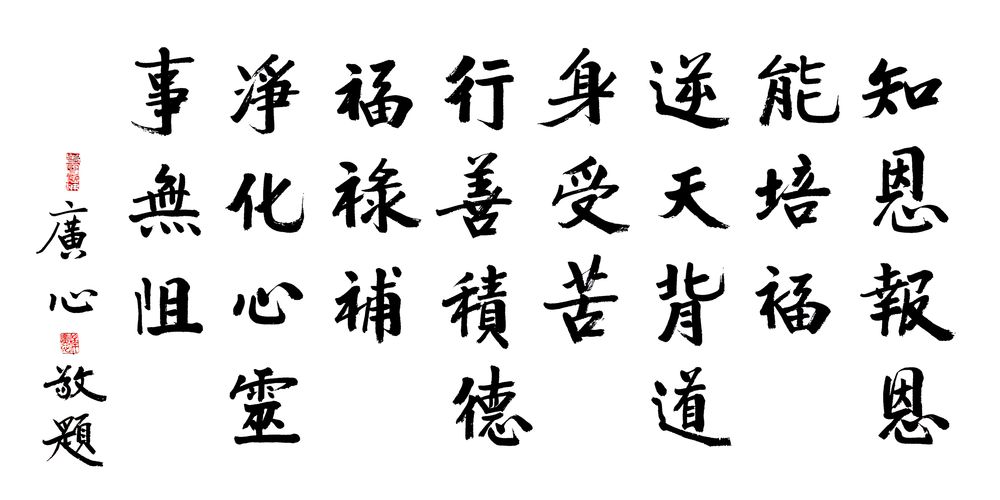 知恩報恩
能培福
逆天背道
身受苦
行善積德
福祿補
淨化心靈
事無阻
廣心敬題